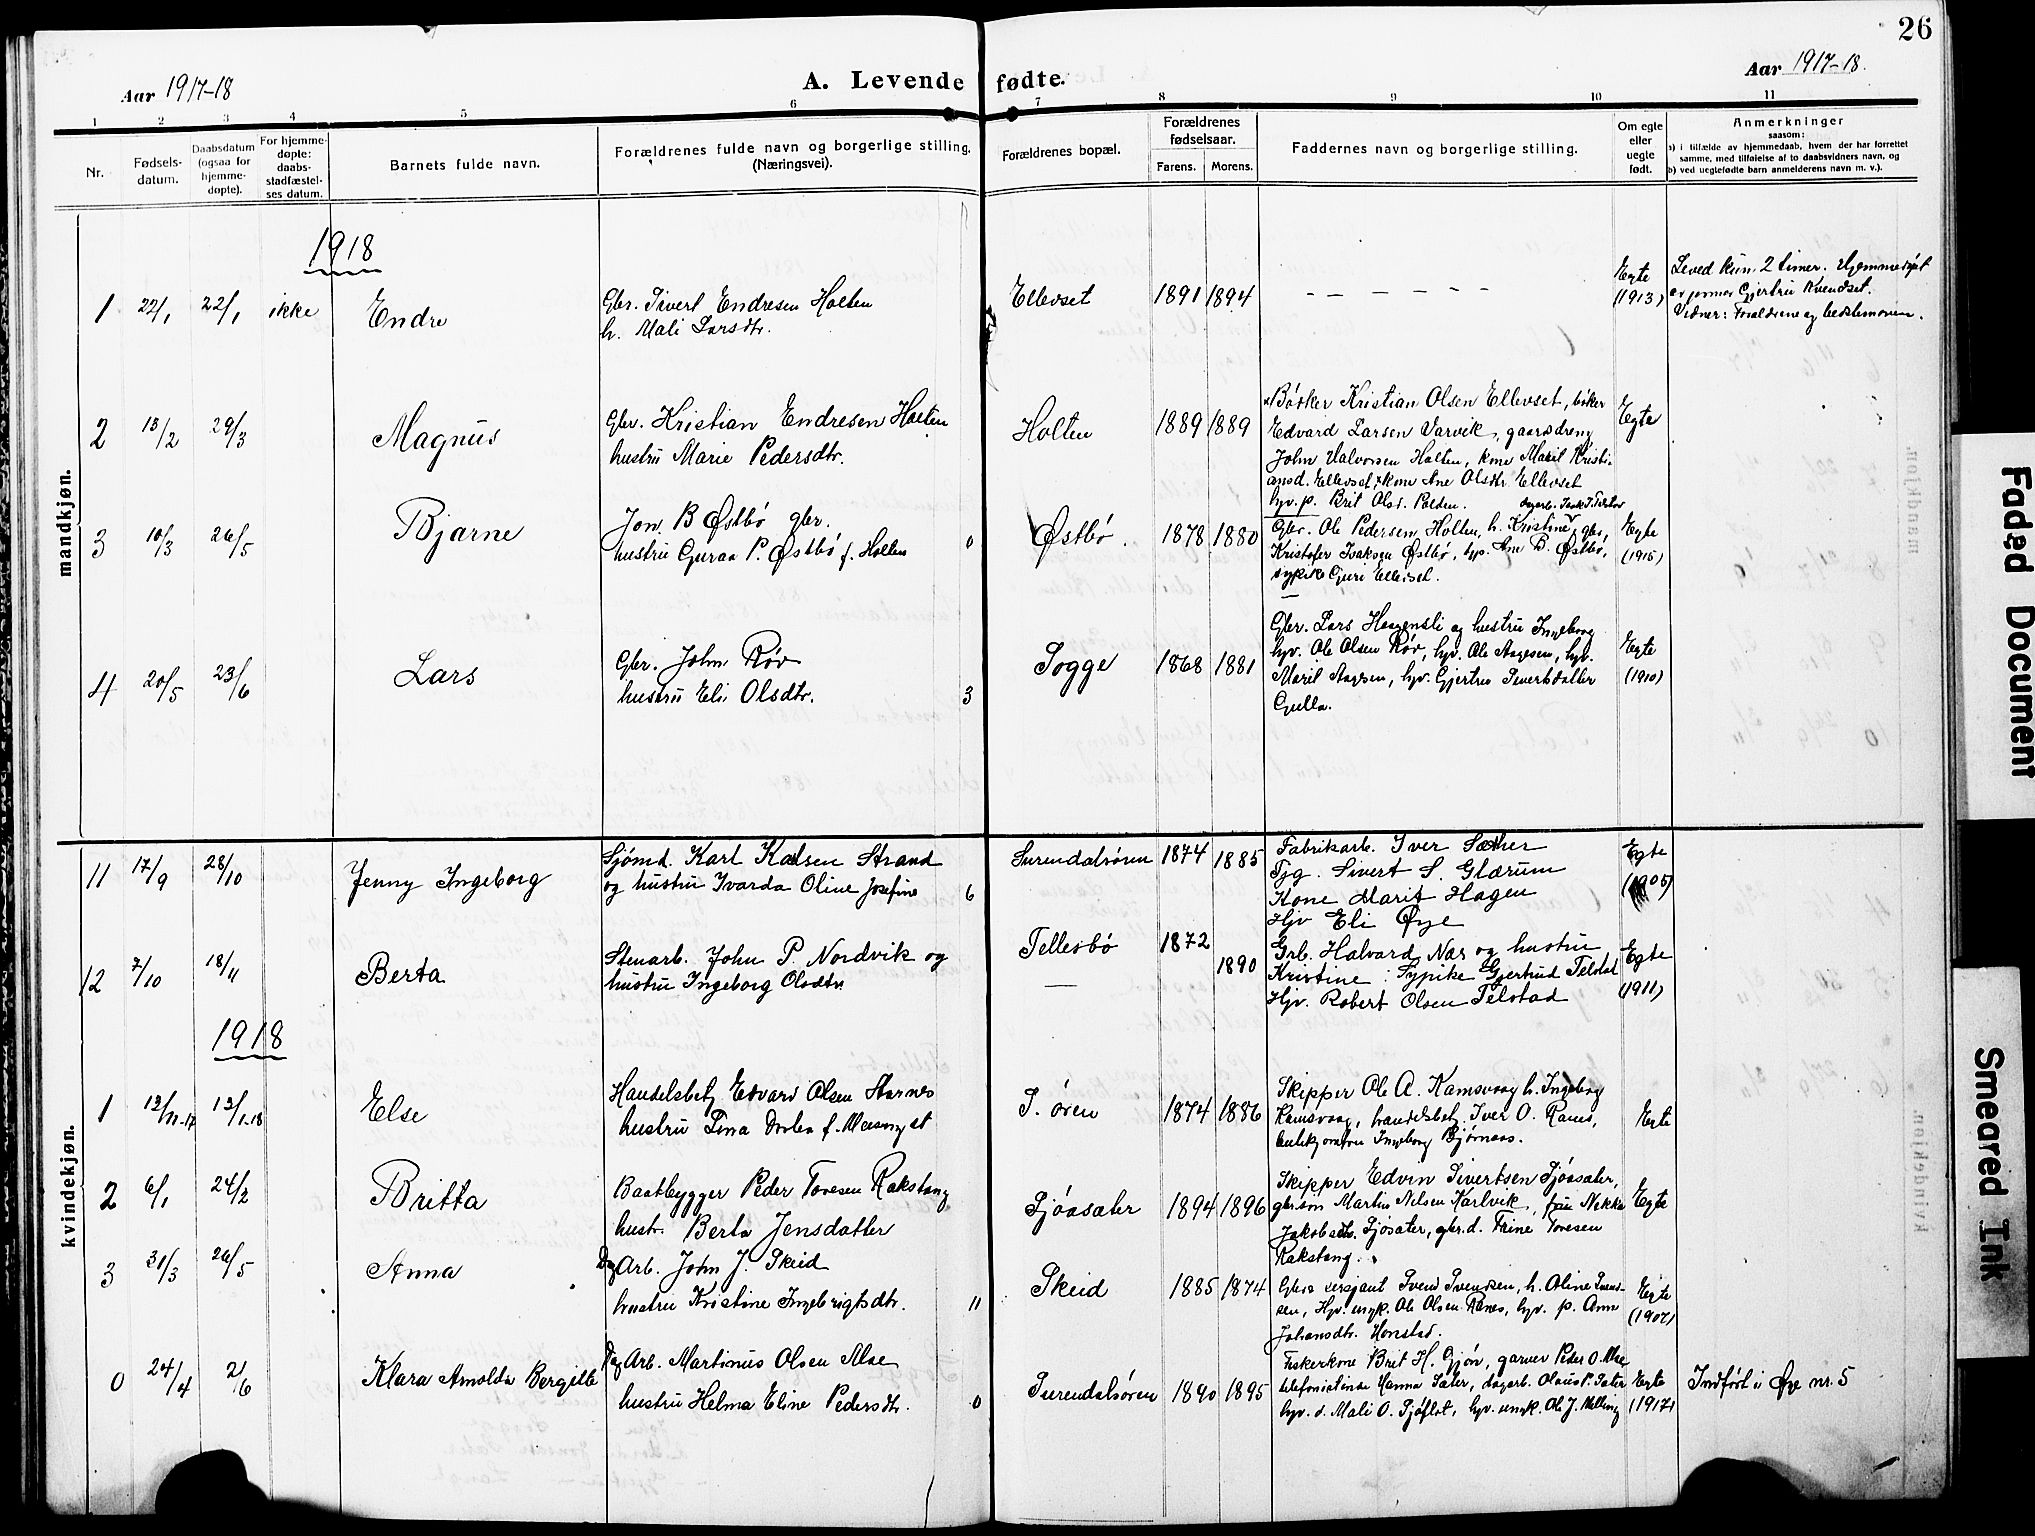 26
Aar 1917-18
A. Levende fødte.
Aar 1917-18.
1 2 3 4 5 6 7 8 9 10 11
Nr.
Fødsels-
datum.
Daabsdatum
(ogsaa for
hjemme-
døpte).
For hjemme-
døpte:
daabs-
stadfæstel-
ses datum.
Barnets fulde navn.
Forældrenes fulde navn og borgerlige stilling.
(Næringsvei).
Forældrenes bopæl.
Forældrenes
fødselsaar.
Farens. Morens.
Faddernes navn og borgerlige stilling.
Om egte
eller
uegte
født.
Anmerkninger
saasom:
a) i tilfælde av hjemmedaab, hvem der har forrettet
samme, med tilføielse af to daabsvidners navn, og
b) ved uegtefødte barn anmelderens navn m. v.).
mandkjøn.
1918
1 22/1 22/1 ikke Endre
Gbr. Sivert Endresen Holten
h. Mali Larsdtr.
Ellevset 1891 1894
Egte
(1913)
Leved kun 2 timer. Hjemmedøpt
av jormor Gjertru Kvendset.
Vidner: Forældrene og bedstemoren.
2 13/2 29/3 Magnus
Gbr. Kristian Endresen Holten
hustru Marie Pedersdtr.
Holten 1889 1889
Bødker Kristian Olsen Ellevset, bøker
Edvard Larsen Varvik, gaardsdreng
John Halvorsen Holten, kone Marit Kristi-
ansd. Ellevset, kone Ane Olsdtr. Ellevset
hyv. p. Brit Olsd. Polden.
Egte
3 10/3 26/5 Bjarne
Jon B Østbø gbr.
hustru Guraa P. Østbø f. Holten 0
Østbø. 1878 1880
Gbr. Ole Pedersen Holten, h. Kristine, gbr.
Kristofer Isaksen Østbø, hyp. Ane B. Østbø,
sypike Guri Ellevset.
Egte
(1915)
4 20/5 23/6 Lars
Gbr. John Røv
hustru Eli Olsdtr. 3
Sogge 1868 1881
Gbr. Lars Haugensli og hustru Ingeborg
hyv. Ole Olsen Røv, hyv. Ole Aagesen, hyv.
Marit Aagesen, hyv. Gjertru Sivertsdatter
Gulla.
Egte
(1910)
kvindekjøn.
11 17/9 28/10 Jenny Ingeborg
Sjømd. Karl Karlsen Strand
og hustru Ivarda Oline Josefine 6
Surendalsøren 1874 1885
Fabrikarb. Iver Sæther
Tjg. Sivert S. Glærum
Kone Marit Hagen
Hjv Eli Øye
Egte
(1905)
12 7/10 18/11 Berta
Stenarb. John P. Nordvik og
hustru Ingeborg Olsdtr
Tellesbø 1872 1890
Grb. Halvard Næs og hustru
Kristine : Sypike Gjertrud Telstad
Hjv. Robert Olsen Telstad
Egte
(1911)
1918
1 13/11-17 13/1-18 Else
Handelsbetj Edvard Olsen Starnes
hustru Lina Dorlea f.
S. øren 1874 1886
Skipper Ole A. Kamsvaag h. Ingeborg
Kamsvaag, handelsbetj. Iver O. Ranes,
Ingeborg Bjørnaas.
Egte
2 6/1 24/2 Britta
Baatbygger Peder Toresen Rakstang
hustr. Berta Jensdatter
Sjøasæter 1894 1896
Skipper Edvin Sivertsen Sjøasæter,
gbr.søn Martin Nilsen Karlvik, Nikka
Jakobsdtr. Sjøsæter, gbr.d. Trine Toresen
Rakstang.
Egte
3 31/3 26/5 Anna
Dag Arb. John J. Skeid
hustru Kristine Ingebrigtsdtr. 11
Skeid 1885 1874
sersjant Svend Svendsen, h. Oline Svend-
sen, Hyv. ungk. Ole Olsen Ranes, hyv. p. Ann
Johansdtr. Honstad.
Egte
(1907)
0 24/4 2/6 Klara Arnolda Bergitte
Dag Arb. Martinus Olsen Moe
hustru Helma Eline Pedersdtr. 0
Surendalsøren 1890 1895
Fiskerkone Brit H. Gjøn, garver Peder O. Moe
telefonistinde Hanna Sæter, dagarb. Olaus P. Sæter
hyv. d. Mali O. Sjøflot, hyv. ungk. Ole J. Melling
Egte
(1917)
Indført i Øye nr. 5
Faded Document
Smeared Ink